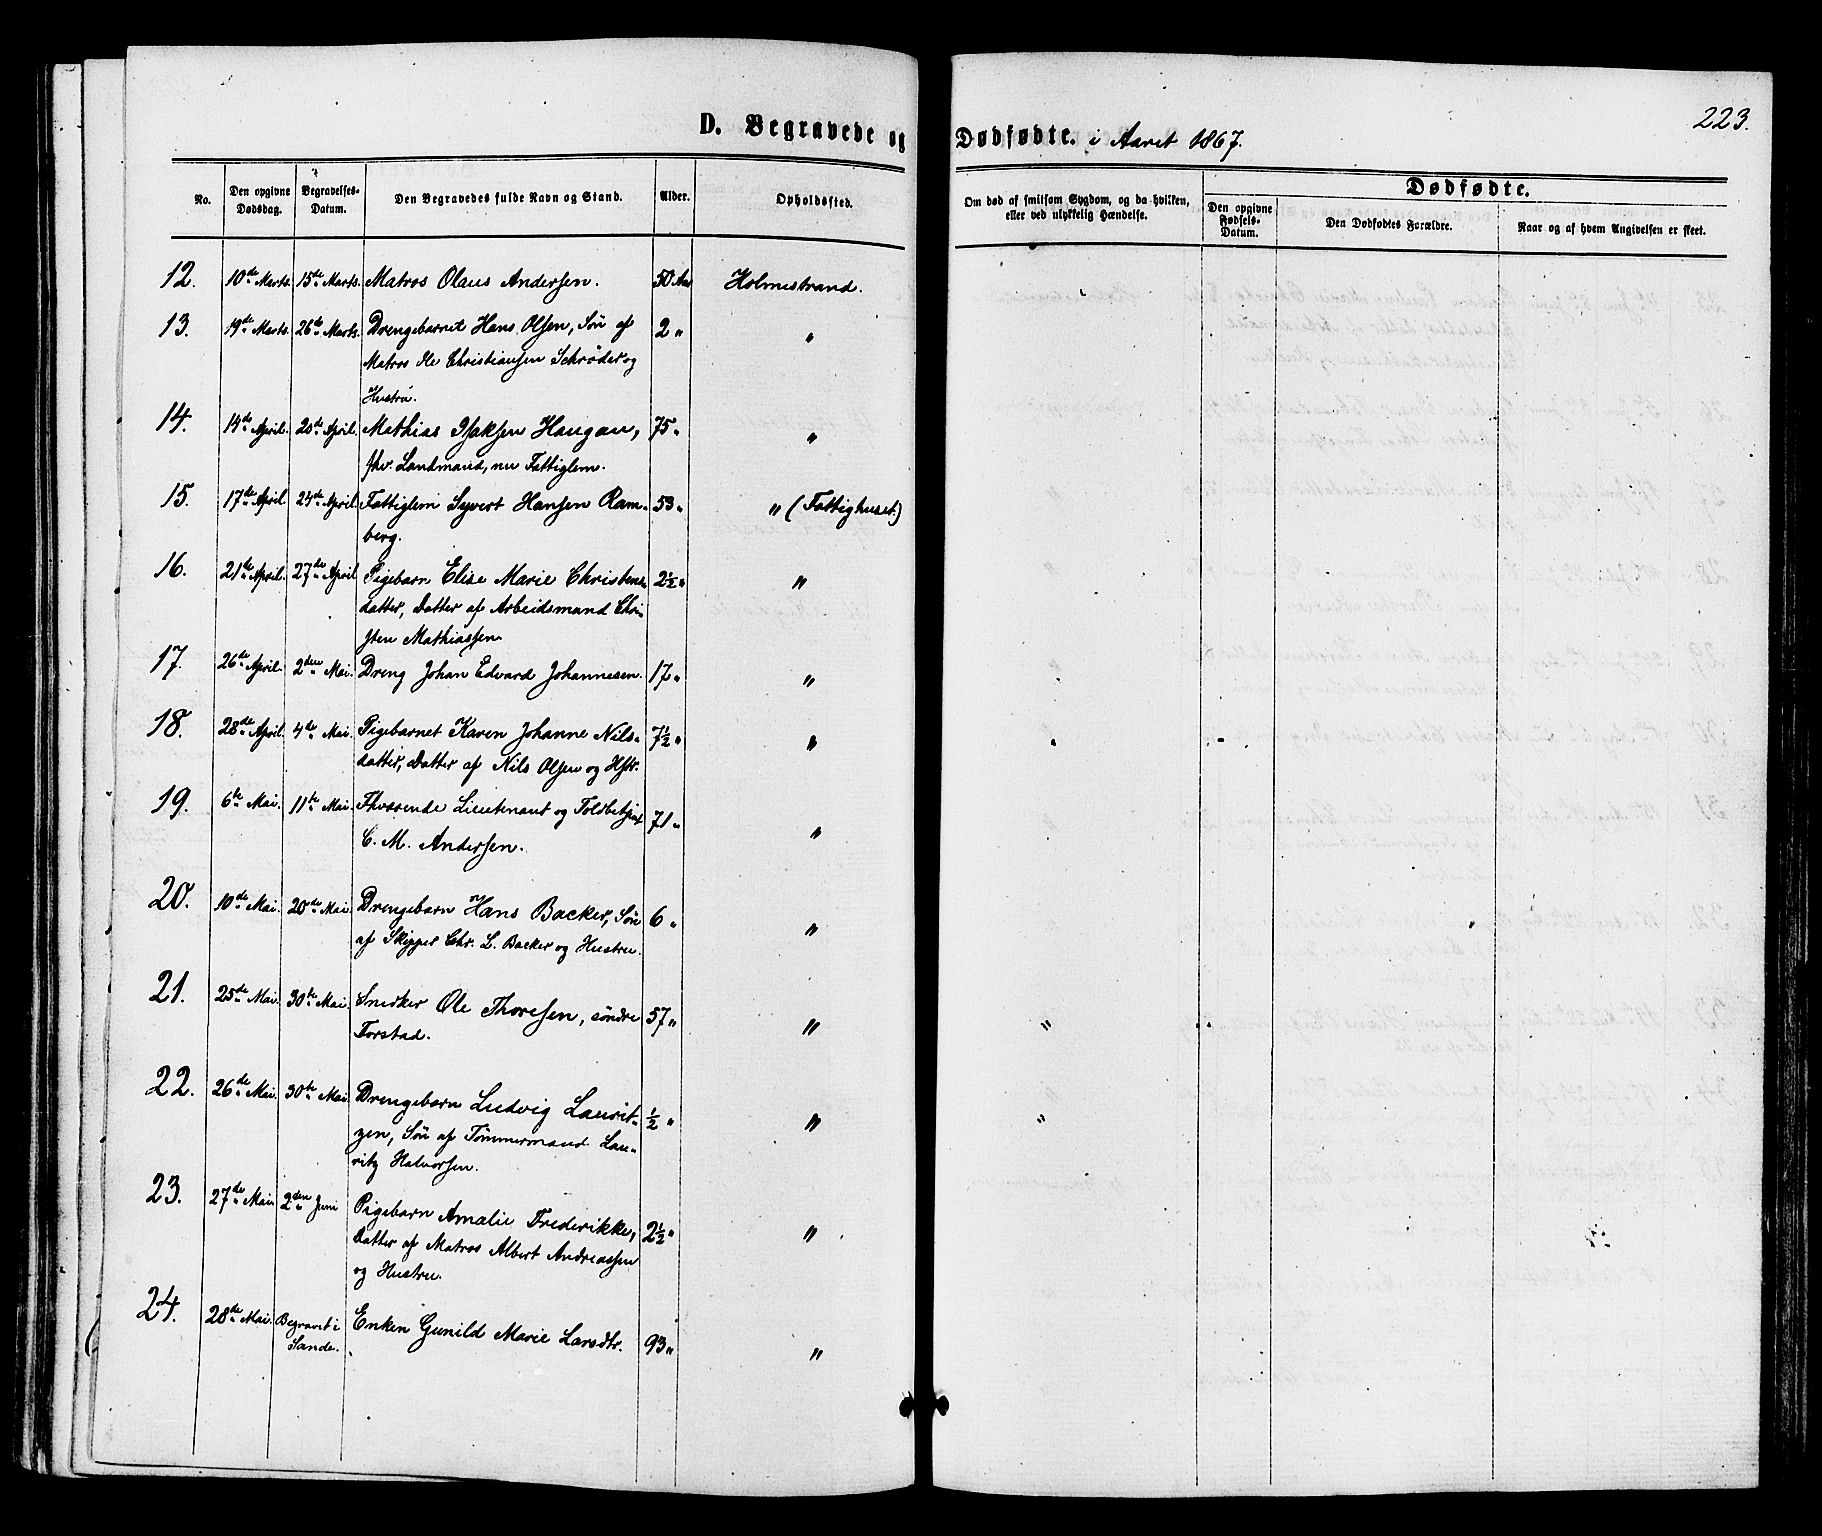 223.
D. Begravede og Dødfødte. i Aaret 1867.
No.
Den opgivne Dødsdag.
Begravelses-Datum.
Den Begravedes fulde Navn og Stand.
Alder.
Opholdssted.
Om død af smitsom Sygdom, og da hvilken,
eller ved ulykkelig Hændelse.
Dødfødte.
Den opgivne Fødsels-Datum.
Den Dødfødtes Forældre.
Naar og af hvem Angivelsen er skeet.
12. 10de Marts. 15de Marts. Matros Olaus Andersen. 50 Aar Holmestrand.
13. 19de Marts. 26de Marts. Drengebarnet Hans Olsen, Søn af 2 " "
Matros Ole Christiansen Schrøder og
Hustru.
14. 14de April. 20de April. Mathias Isaksen Haugan, 75 " "
fhv. Landmand, nu Fattiglem.
15. 17de April 24de April. Fattiglem Syvert Hansen Ram- 53 " " (Fattighuset.)
berg.
16. 21de April. 27de April Pigebarn Elise Marie Christens- 2½ " "
datter, Datter af Arbeidsmand Chri-
sten Mathiassen
17. 26de April. 2den Mai. Dreng Johan Edvard Johannesen. 17 " "
18. 28de April. 4de Mai. Pigebarnet Karen Johanne Nils- 7½ " "
datter, Datter af Nils Olsen og Hstr.
19. 6te Mai. 11te Mai. Fhværende Lieutenant og Toldbetjent 71 " "
C. M. Andersen.
20. 10de Mai. 20de Mai. Drengebarn Hans Backer, Søn 6 " "
af Skipper Chr. L. Backer og Hustru.
21. 25de Mai. 30te Mai. Snedker Ole Thoresen, søndre 57 " " "
Forstad.
22. 26de Mai. 30te Mai Drengebarn Ludvig Laurit- ½ " " "
zen, Søn af Tømmermand Lau-
ritz Halvorsen.
23. 27de Mai. 2den Juni Pigebarn Amalie Frederikke, 2½ " "
Datter af Matros Albert Andreassen
og Hustru.
24. 28de Mai. Begravet i Sande. Enken Gunild Marie Larsdtr. 93 " "